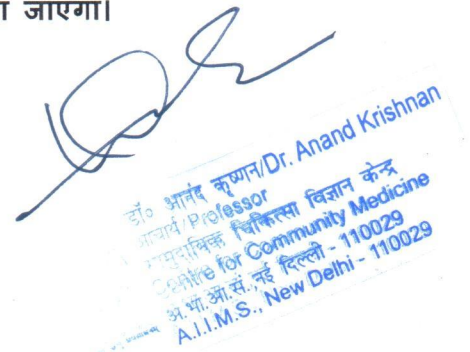 जाएगा।
डॉ० आनंद कृष्णन/Dr. Anand Krishnan
आचार्य/Professor
सामुदायिक चिकित्सा विज्ञान केन्द्र
Centre for Community Medicine
अ.भा.आ.सं., नई दिल्ली - 110029
A.I.I.M.S., New Delhi - 110029